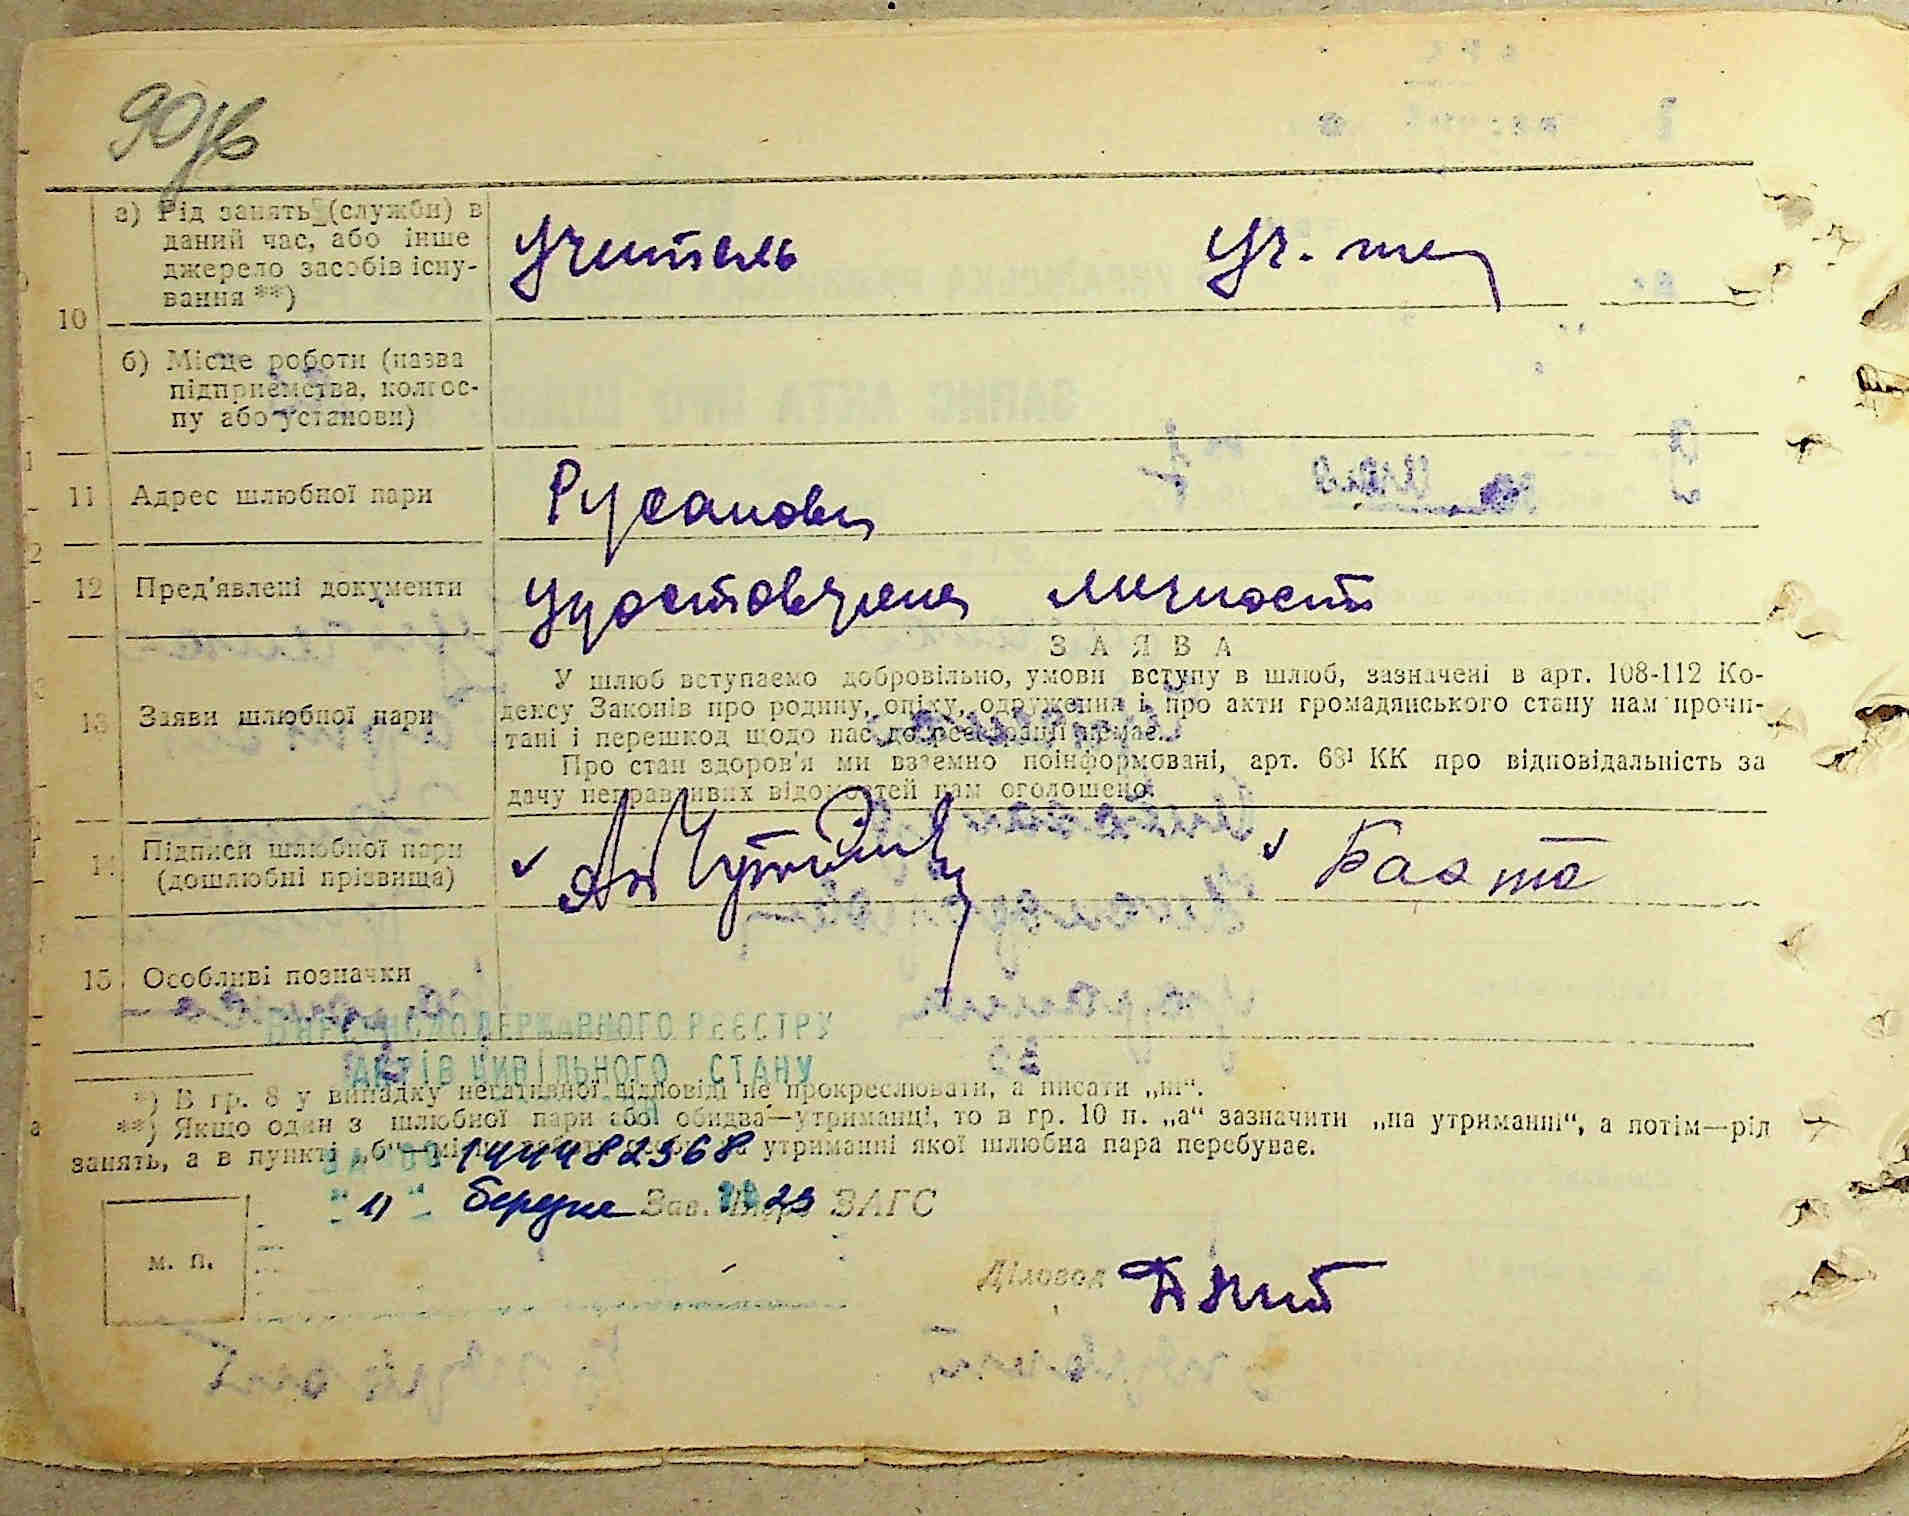 90
10
а) Рід занять (служби) в
даний час, або інше
джерело засобів існу-
вання **)
Учитель Уч.
б) Місце роботи (назва
підприємства, колгос-
пу або установи)
11 Адрес шлюбної пари
12 Пред'явлені документи
личности
13 Заяви шлюбної пари
ЗАЯВА
У шлюб вступаємо добровільно, умови вступу в шлюб, зазначені в арт. 108-112 Ко-
дексу Законів про родину, опіку, одруження і про акти громадянського стану нам прочи-
тані і перешкод щодо нас до реєстрації немає.
Про стан здоров'я ми взаємно поінформовані, арт. 68¹ КК про відповідальність за
дачу неправдивих відомостей нам оголошено.
14 Підписи шлюбної пари
(дошлюбні прізвища)
15 Особливі позначки
ВНЕСЕНО ДО ДЕРЖАВНОГО РЕЄСТРУ
АКТІВ ЦИВІЛЬНОГО СТАНУ
*) В гр. 8 у випадку негативної відповіді не прокреслювати, а писати „ні“.
**) Якщо один з шлюбної пари або обидва—утриманці, то в гр. 10 п. „а“ зазначити „на утриманні“, а потім—рід
занять, а в пункті „б“ утриманні якої шлюбна пара перебуває.
ЗА № 00144482368
березня 2023
Зав. Бюро ЗАГС
м. п.
Діловод